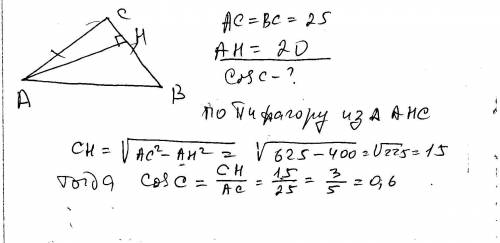 C
H
A
B
AC = BC = 25
AH = 20
cos C - ?
по Пифагору из Δ AHC
CH = √AC² - AH² = √625 - 400 = √225 = 15
тогда cos C = CH/AC = 15/25 = 3/5 = 0,6